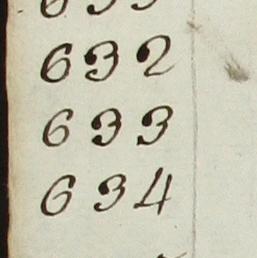 632
633
634